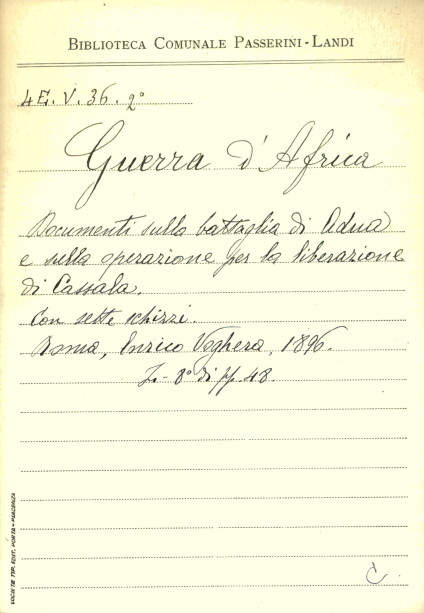 BIBLIOTECA COMUNALE PASSERINI-LANDI
4E. V. 36. 2°
Guerra d'Africa
Documenti sulla battaglia di Adua
e sulla operazione per la liberazione
di Cassala.
Con sette schizzi.
Roma, Enrico Voghera, 1896.
8° di pp. 48.
SOCIETÀ TIP. EDIT. PORTA-PIACENZA
C.